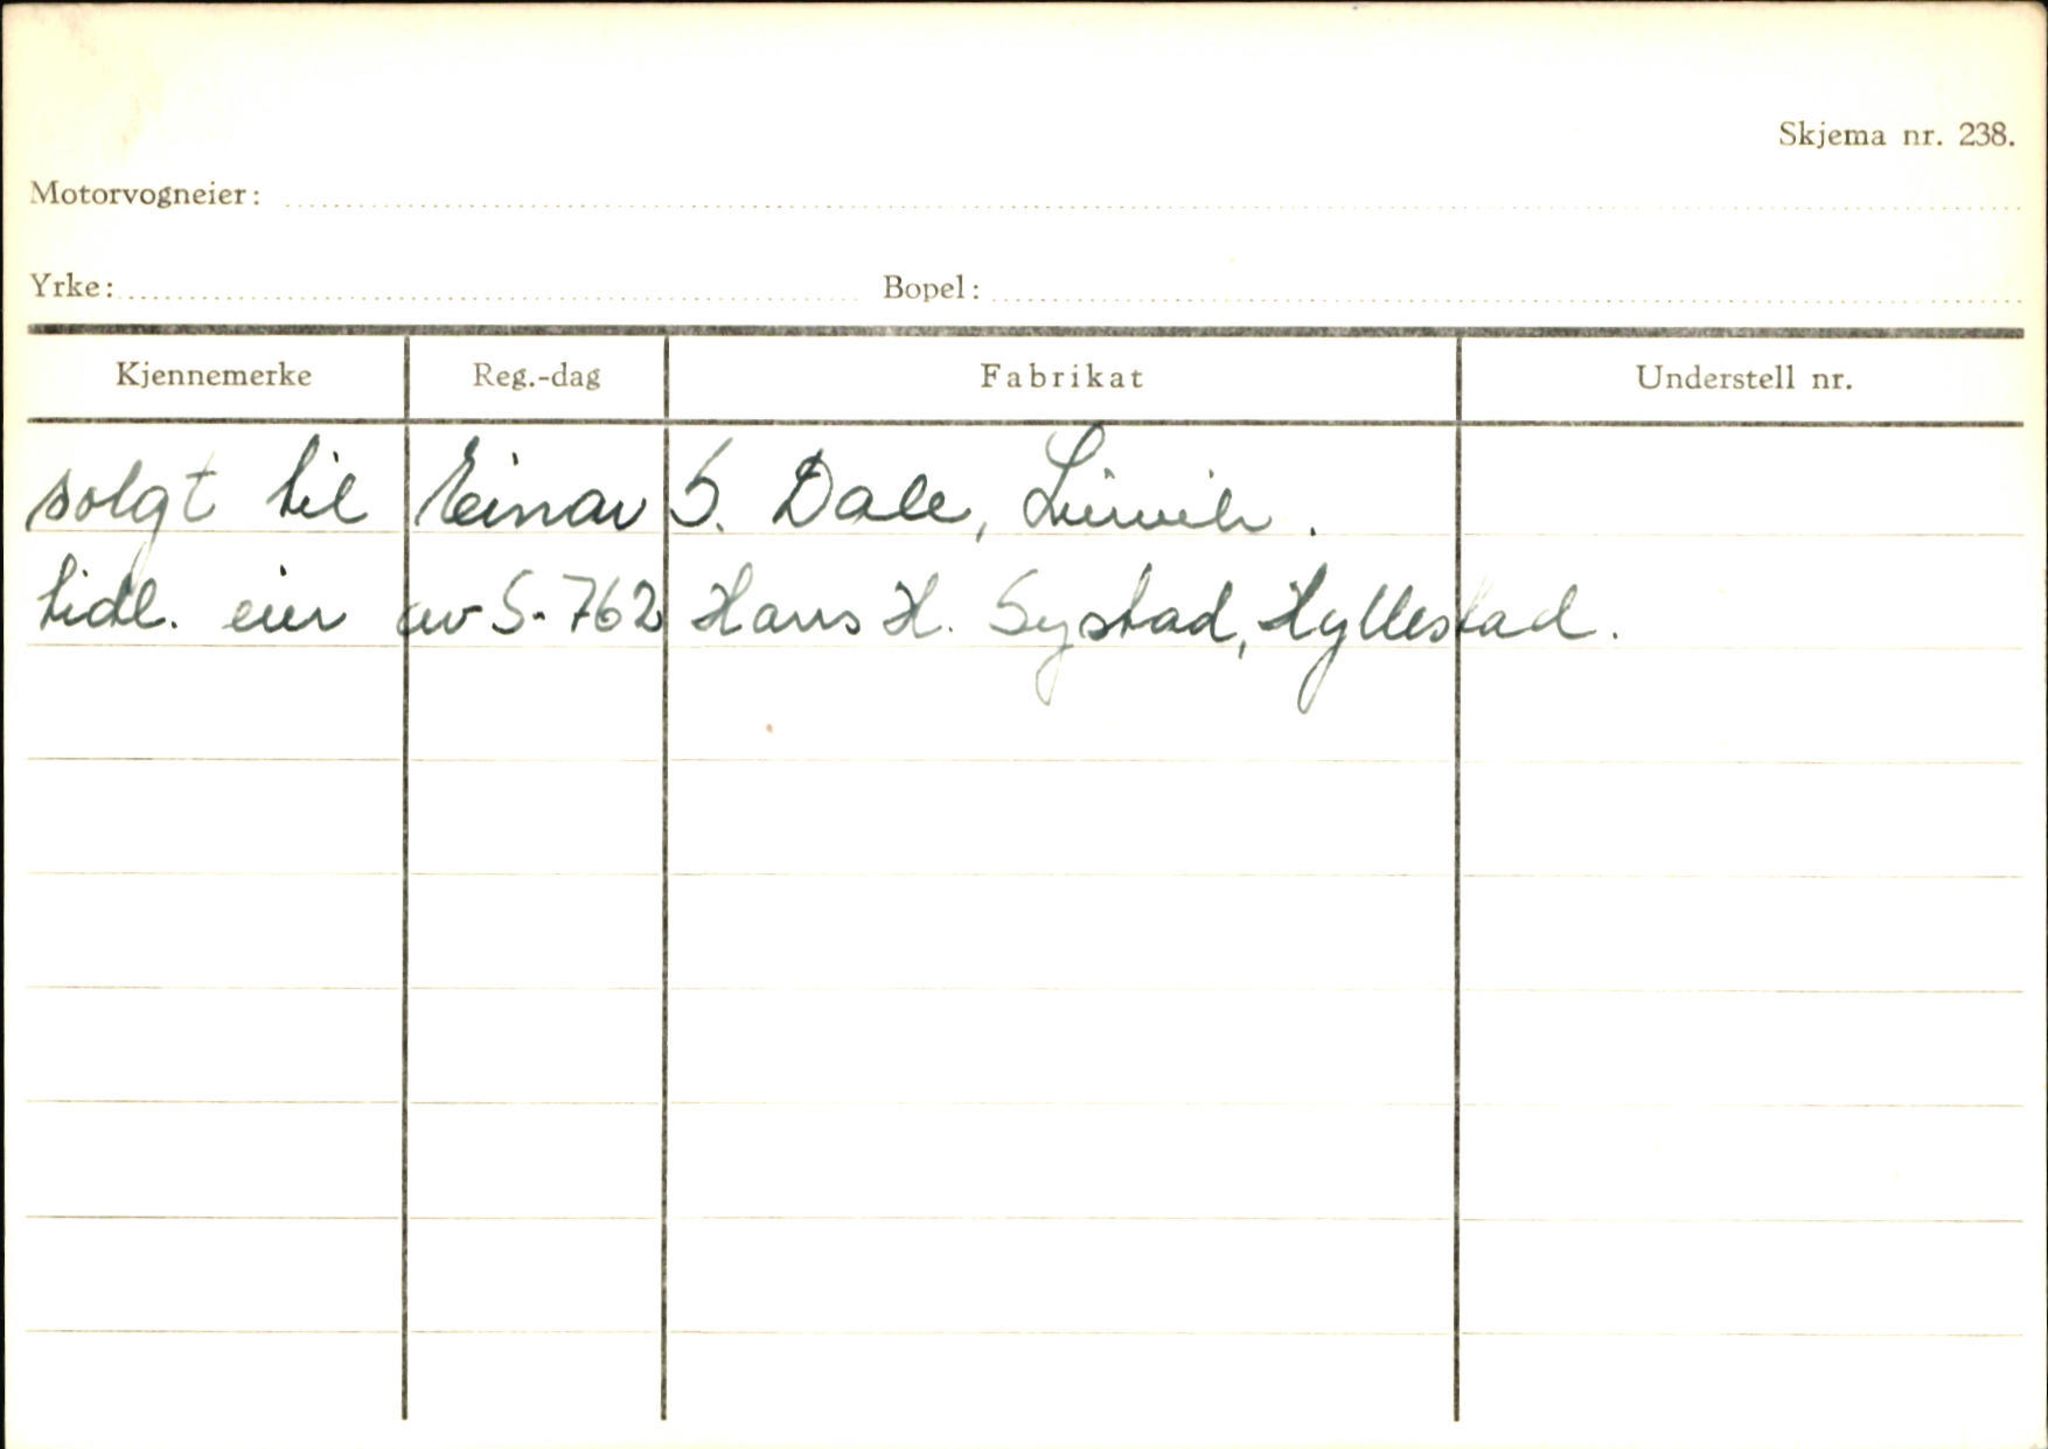 Skjema nr. 238.
Motorvogneier:
Yrke: Bopel:
Kjennemerke Reg.-dag Fabrikat Understell nr.
solgt til Einar S. Dale, 
tidl. eier av S-762 Hans H. Systad, Hyllestad.